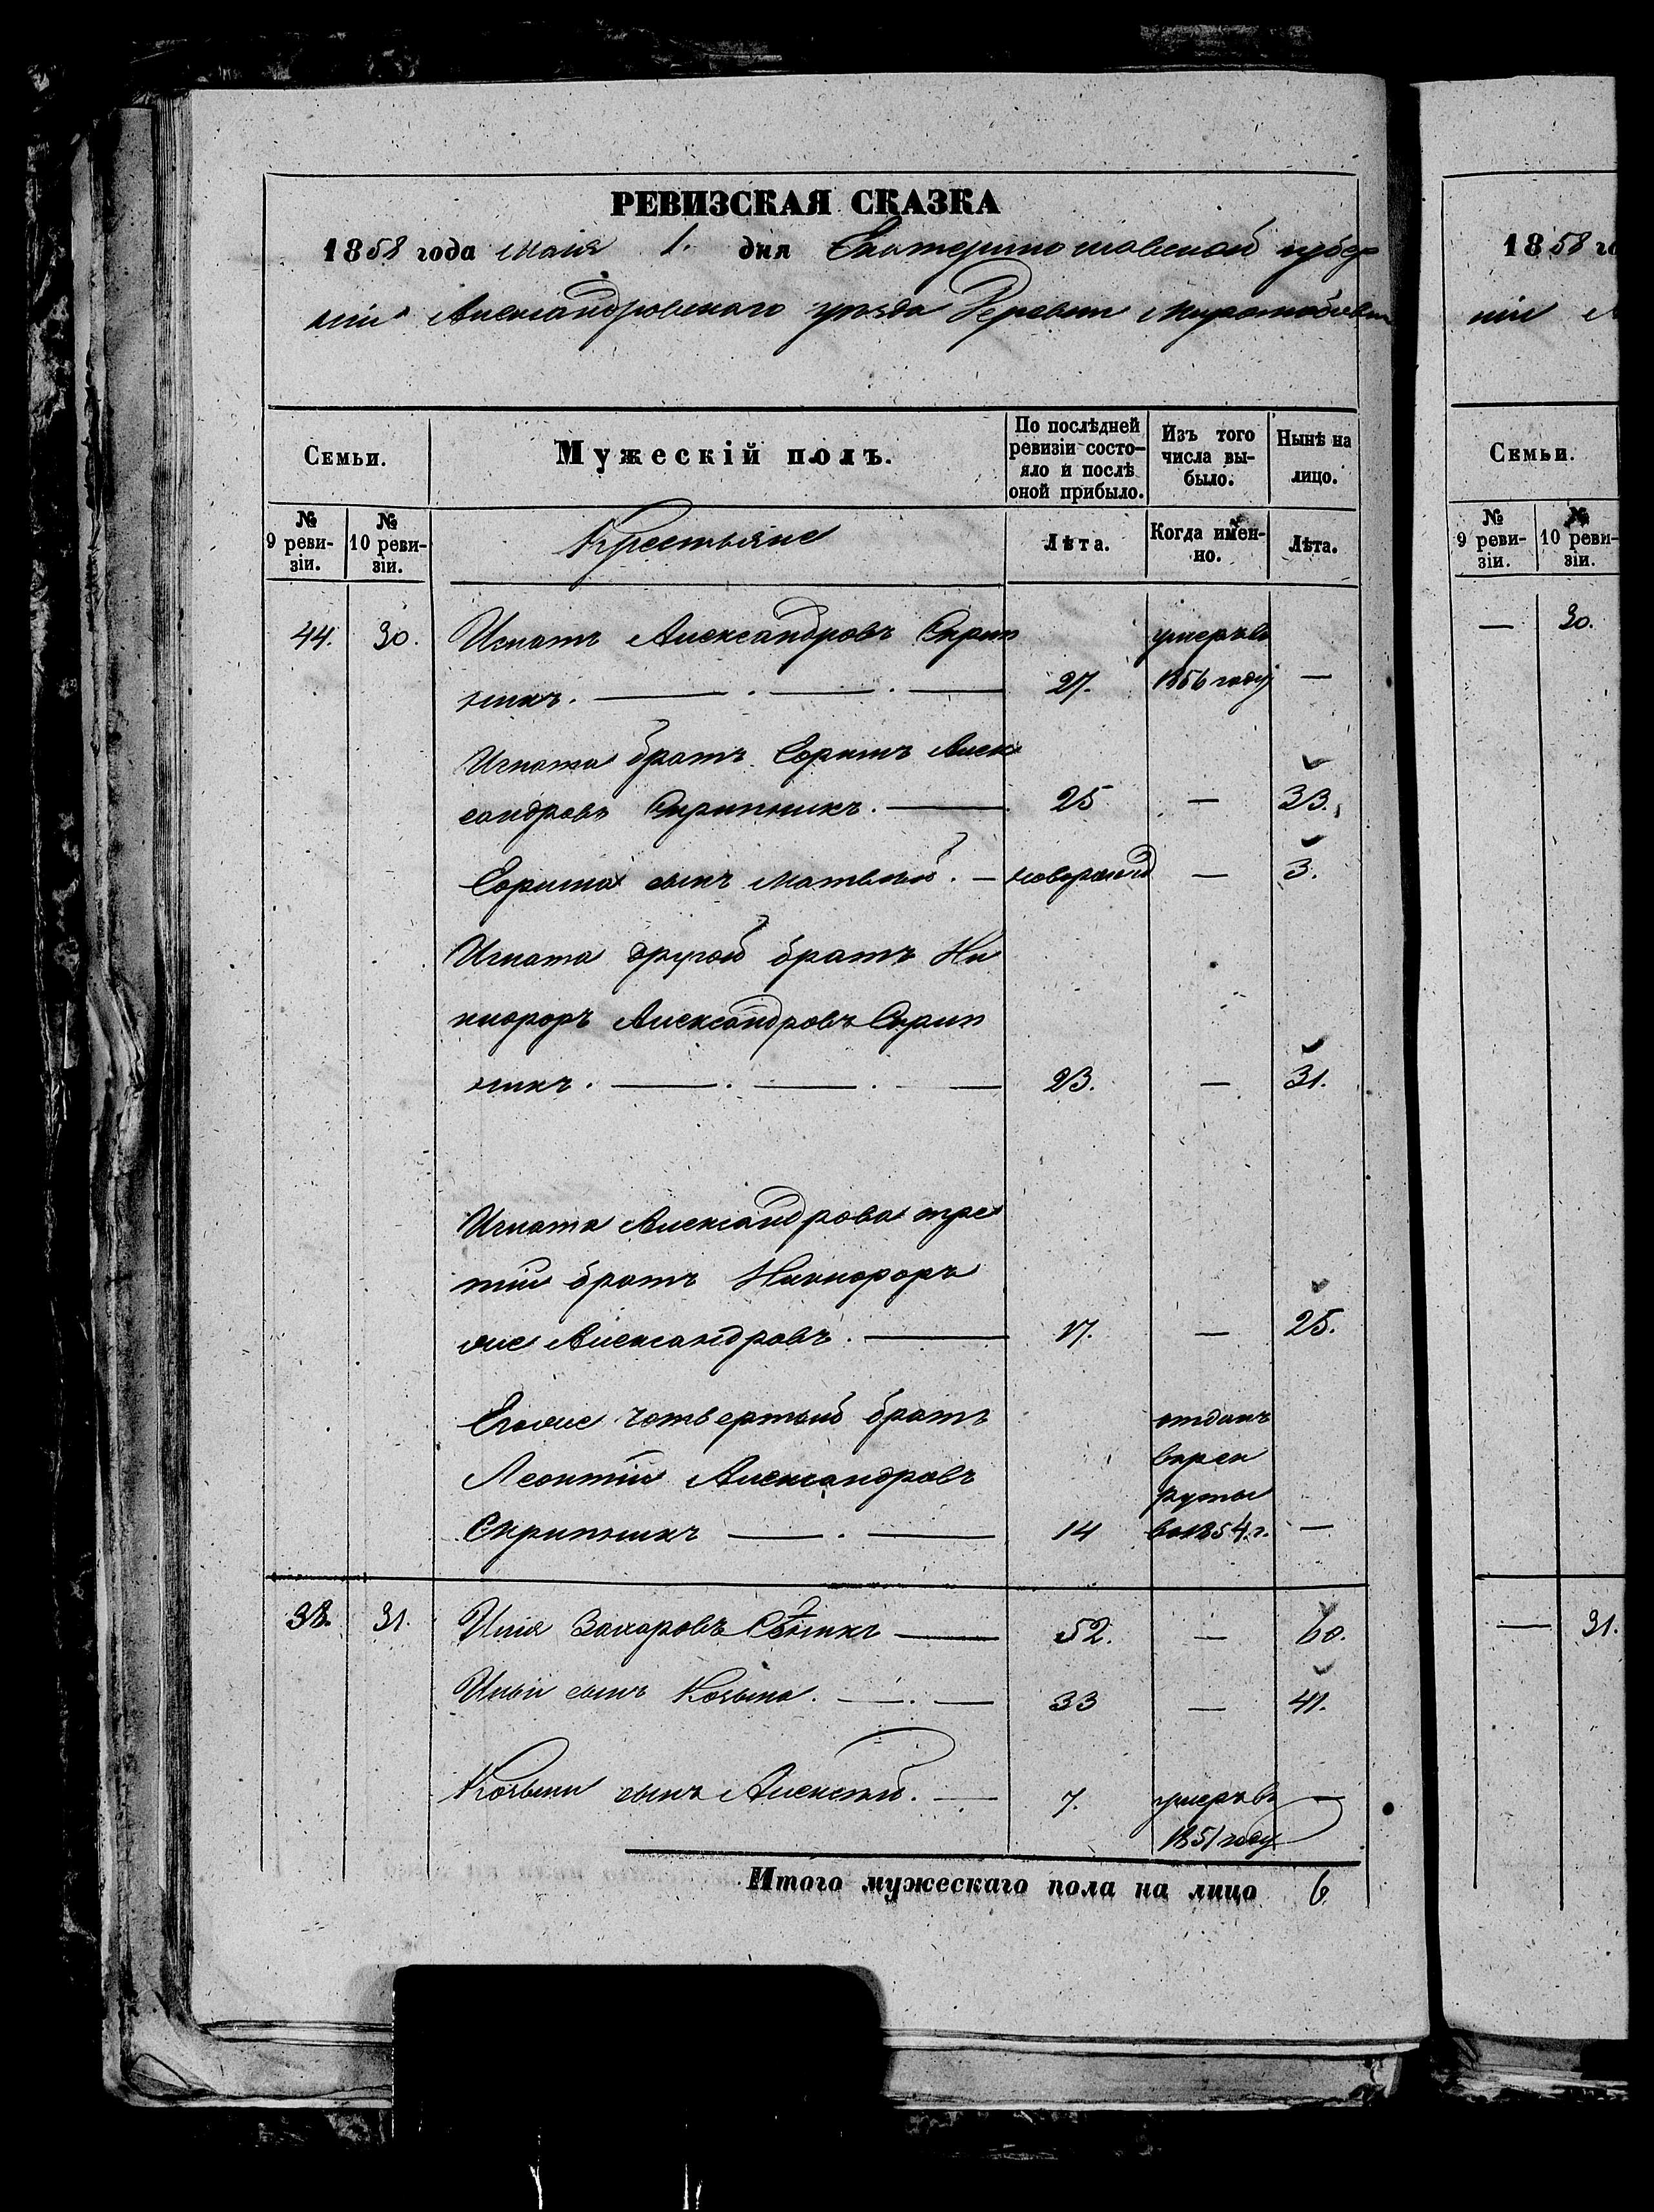 РЕВИЗСКАЯ СКАЗКА
1858 года маія 1. дня Екатеринославской губер
ніи Александровскаго уезда Деревни
Семьи.
Мужескій полъ.
По послѣдней ревизіи состо-
яло и послѣ оной прибыло.
Изъ того числа вы-
было.
Нынѣ на лицо.
№ 9 реви-
зіи.
№ 10 реви-
зіи.
Крестьяне
Лѣта.
Когда имен-
но.
Лѣта.
44. 30. Игнатъ Александровъ Скрип умеръ въ
никъ. 27. 1856 году —
Игната братъ Алек
сандровъ Скрипникъ. 25 — 33.
сынъ Матвѣй. — новорожд — 3.
Игната другой братъ Ни
кифоръ Александровъ Скрип
никъ. 23. — 31.
Игната Александрова тре
тій братъ Никифоръ
же Александровъ. 17. — 25.
Егоже четвертый братъ отданъ
Леонтій Александровъ врек
руты
Скрипникъ 14 въ 1854 г. —
38. 31. Илія Захаровъ 52. — 60.
Ильи сынъ Козьма. 33 — 41.
Козьмы сынъ Алексѣй. 7. умеръ въ —
1851 году
Итого мужескаго пола на лицо 6.
1858 го
ніи А
Семьи.
№ 9 реви-
зіи.
№ 10 реви-
зіи.
— 30.
— 31.